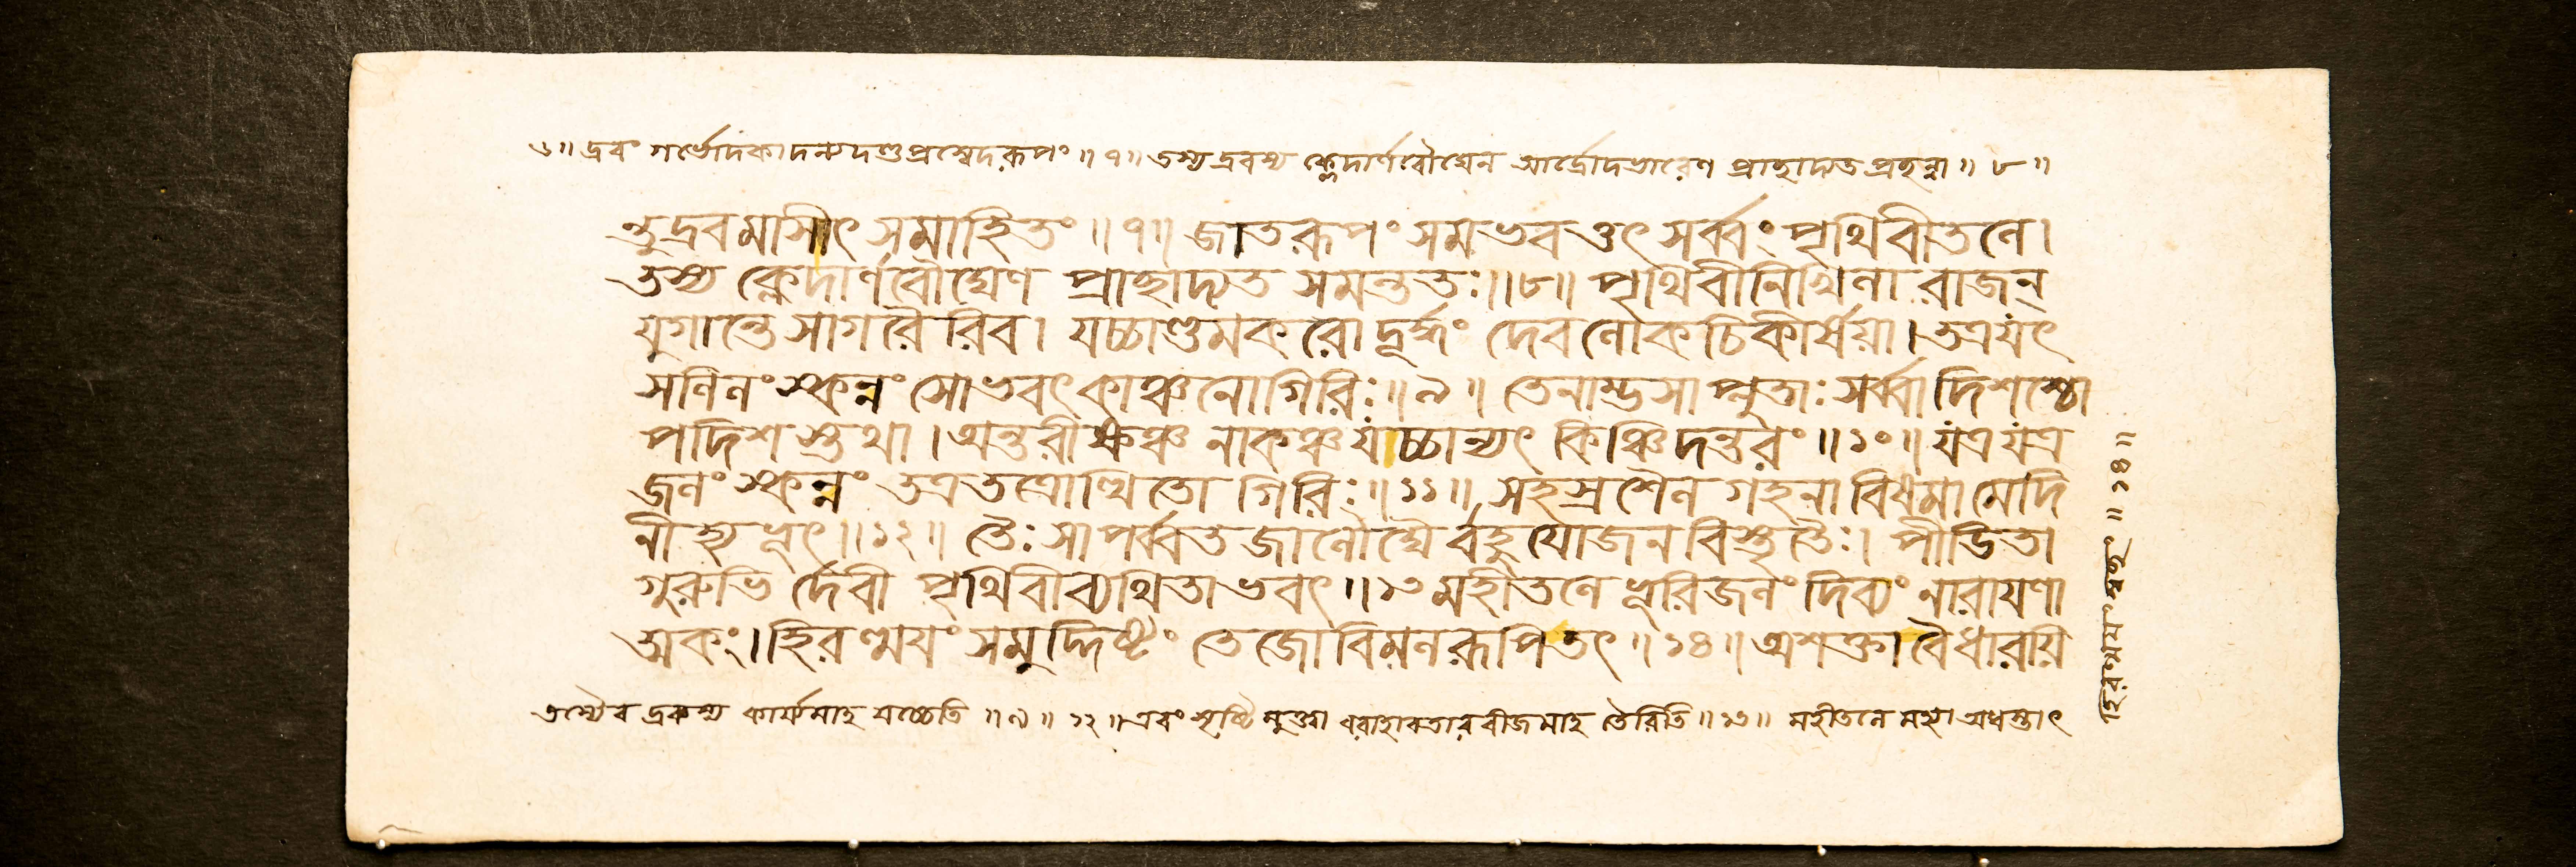 ৬॥ দ্রবং গর্ভোদকাদন্যদণ্ডপ্রস্বেদরূপং॥৭॥ তস্যদ্রবস্য ক্লেদার্ণবৌঘেন আর্দ্রোদভারেণ প্রাছাদ্যত প্রছন্না॥ ৮॥
ণ্ডদ্রবমাসীৎ সমাহিতং॥৭॥ জাতরূপং সমভবত্তৎ সর্ব্বং পৃথিবীতলে।
তস্য ক্লেদার্ণবৌঘেণ প্রাছাদ্যত সমন্ততঃ॥৮॥ পৃথিবীনিখিলা রাজন্
যুগান্তে সাগরৈরিব। যচ্চাণ্ডমকরোদ্পূর্ব্বং দেবলোকচিকীর্ষয়া। তত্রযৎ
সলিলং স্কন্নং সোভবৎ কাঞ্চনোগিরিঃ॥৯॥ তেনাম্ভসাপ্লুতাঃ সর্ব্বাদিশশ্চো
পদিশস্তথা। অন্তরীক্ষঞ্চ নাকঞ্চ যচ্চান্যৎ কিঞ্চিদন্তরং॥১০॥ যত্রযত্র
জলং স্কন্নং তত্রতত্রোত্থিতো গিরিঃ॥১১॥ সহস্রশৈল গহনা বিষমামেদি
নীত্যভূৎ॥১২॥ তৈঃ সাপর্ব্বতজালৌঘৈর্বহুযোজনবিস্তৃতৈঃ। পীডিতা
গুরুভির্দেবী পৃথিবীব্যথিতাভবৎ॥১৩ মহীতলে ভূরিজলং দিব্যং নারায়ণা
ত্মকং। হিরণ্ময়ং সমুদ্দিষ্টং তেজোবিমলরূপিতৎ॥১৪॥ অশক্তাবৈধারয়ি
তস্যৈব দ্রবস্য কার্য্যমাহ যচ্চেতি॥৯॥ ১২॥ এবং সৃষ্টিমুক্ত্বা বরাহাবতারবীজমাহ তৈরিতি॥১৩॥ মহীতলে মহ্যা অধস্তাৎ
হিরণ্ময়ং ॥১৪॥